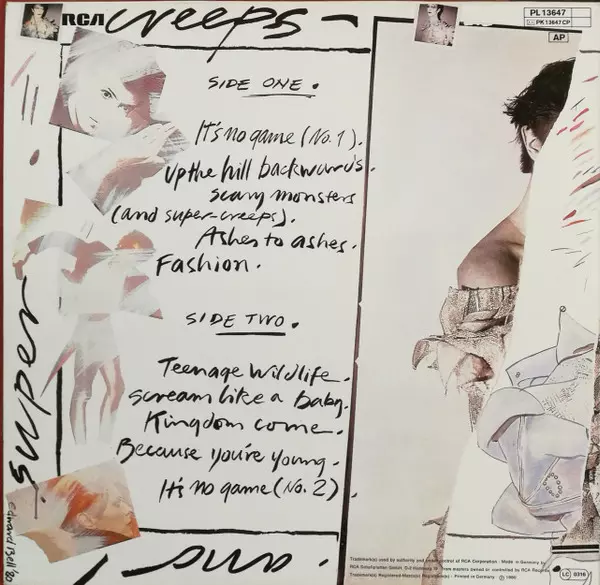 RCA
creeps
PL 13647
PK 13647 CP
AP
SIDE ONE.
It's no game (No. 1).
up the hill backwards.
scary monsters
(and super-creeps).
Ashes to ashes.
Fashion.
SIDE TWO.
Teenage Wildlife.
scream like a baby.
Kingdom come.
Because you're young.
It's no game (No. 2).
super
and
Edward Bell '80
Trademark(s) used by authority and under control of RCA Corporation · Made in Germany by
RCA Schallplatten GmbH,
from masters owned or controlled by RCA Records
Trademark(s) Registered·Marca(s) Registrada(s) · Printed in Germany
LC 0316